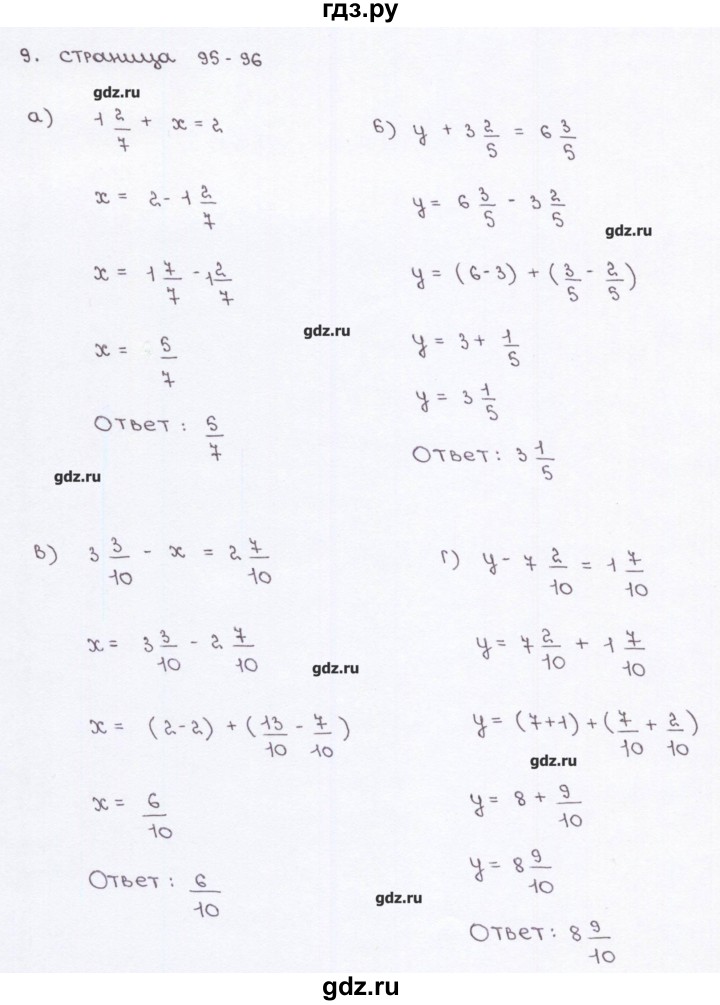 гдз.ру
9. страница 95-96
gdz.ru
а) 1 2/7 + x = 2
x = 2 - 1 2/7
x = 1 7/7 - 1 2/7
gdz.ru
x = 5/7
Ответ: 5/7
gdz.ru
б) y + 3 2/5 = 6 3/5
y = 6 3/5 - 3 2/5
gdz.ru
y = (6-3) + (3/5 - 2/5)
y = 3 + 1/5
y = 3 1/5
Ответ: 3 1/5
в) 3 3/10 - x = 2 7/10
x = 3 3/10 - 2 7/10
gdz.ru
x = (2-2) + (13/10 - 7/10)
x = 6/10
Ответ: 6/10
gdz.ru
г) y - 7 2/10 = 1 7/10
y = 7 2/10 + 1 7/10
y = (7+1) + (7/10 + 2/10)
gdz.ru
y = 8 + 9/10
y = 8 9/10
Ответ: 8 9/10
gdz.ru